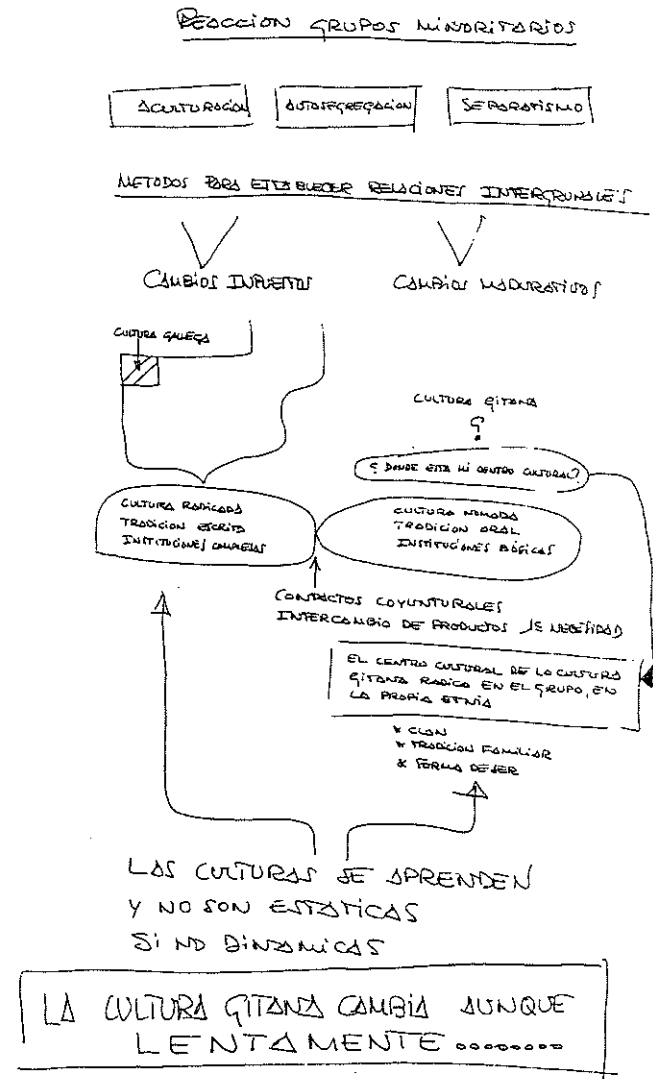 REACCION GRUPOS MINORITARIOS
ACULTURACION
AUTOSEGREGACION
SEPARATISMO
METODOS PARA ESTABLECER RELACIONES INTERGRUPALES
CAMBIOS IMPUESTOS
CAMBIOS MADURATIVOS
CULTURA GALLEGA
CULTURA GITANA
?
¿ DONDE ESTA MI CENTRO CULTURAL?
CULTURA RADICADA
TRADICION ESCRITA
INSTITUCIONES COMPLEJAS
CULTURA NOMADA
TRADICION ORAL
INSTITUCIONES BÁSICAS
CONTACTOS COYUNTURALES
INTERCAMBIO DE PRODUCTOS DE NECESIDAD
EL CENTRO CULTURAL DE LA CULTURA
GITANA RADICA EN EL GRUPO, EN
LA PROPIA ETNIA
* CLAN
* TRADICION FAMILIAR
* FORMA DE SER
LAS CULTURAS SE APRENDEN
Y NO SON ESTATICAS
SI NO DINAMICAS
LA CULTURA GITANA CAMBIA AUNQUE
LENTAMENTE ........